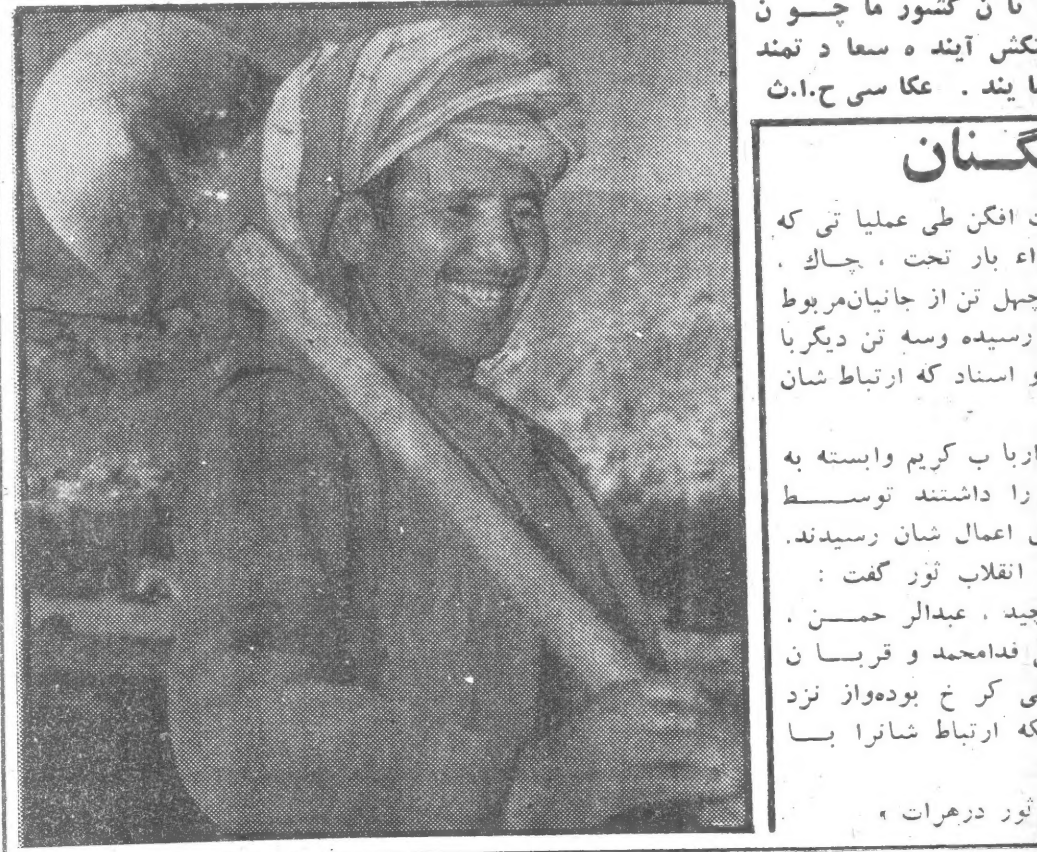 تا ن کشور ما چـــو ن
تکش آیند ه سعا د تمند
ما یند . عکا سی ح.ا.ث
گـنان
افگن طی عملیا تی که
اء بار تخت ، چـاك ،
چهل تن از جانیان‌مربوط
رسیده وسه تن دیگربا
و اسناد که ارتباط شان
اربا ب کریم وابسته به
را داشتند توســـط
اعمال شان رسیدند.
انقلاب ثور گفت :
جید ، عبدالر حمـــن ،
فدامحمد و قربـــا ن
ی کر خ بوده‌واز نزد
که ارتباط شانرا بـــا
ثور درهرات »